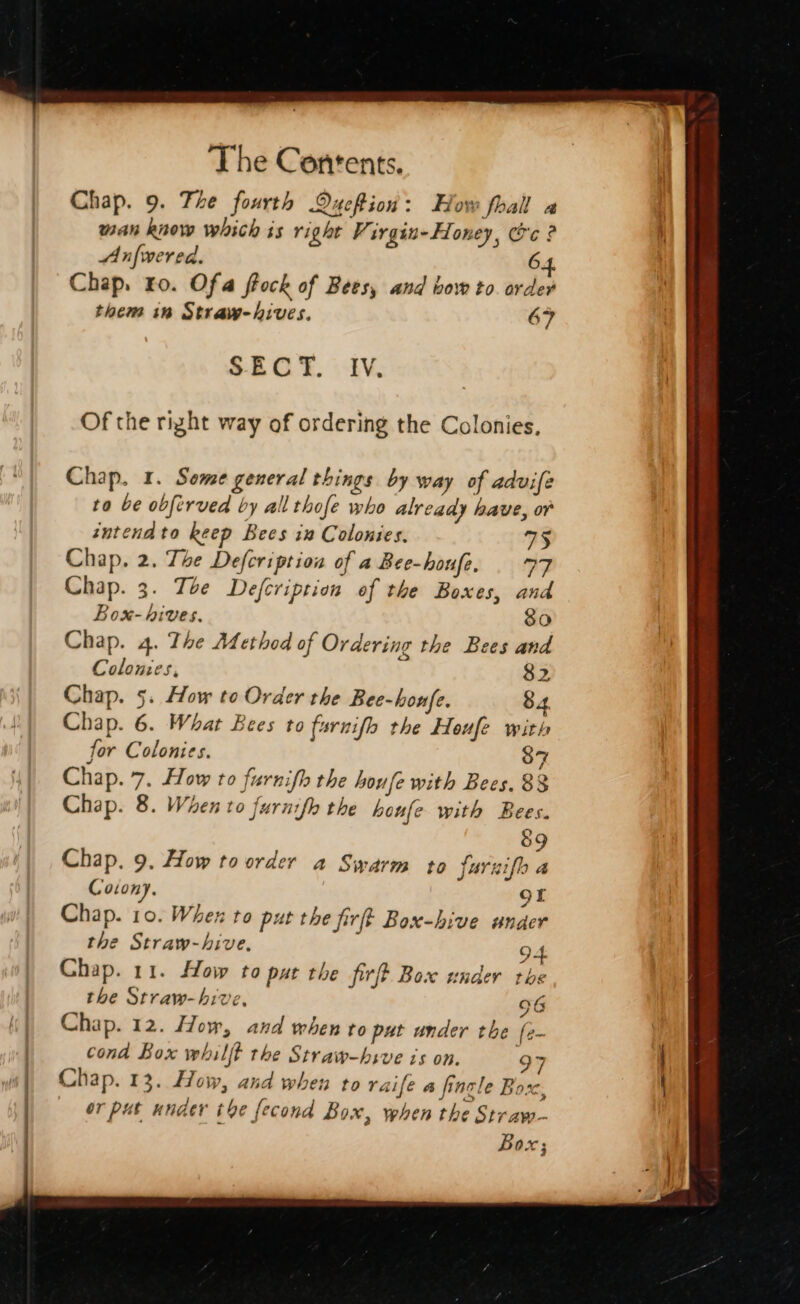 The Contents.
Chap. 9. The fourth Queſtion: How ſhall a
man know which is right Virgin-Honey, &c?
Anſwered. 64
Chap. 10. Of a ſtock of Bees, and how to order
them in Straw-hives. 67
SECT. IV.
Of the right way of ordering the Colonies.
Chap. 1. Some general things by way of adviſe
to be obſerved by all thoſe who already have, or
intend to keep Bees in Colonies. 75
Chap. 2. The Deſcription of a Bee-houſe. 77
Chap. 3. The Deſcription of the Boxes, and
Box-hives. 80
Chap. 4. The Method of Ordering the Bees and
Colonies. 82
Chap. 5. How to Order the Bee-houſe. 84
Chap. 6. What Bees to furniſh the Houſe with
for Colonies. 87
Chap. 7. How to furniſh the houſe with Bees. 88
Chap. 8. When to furniſh the houſe with Bees.
89
Chap. 9. How to order a Swarm to furniſh a
Colony. 91
Chap. 10. When to put the firſt Box-hive under
the Straw-hive. 94
Chap. 11. How to put the firſt Box under the
the Straw-hive. 96
Chap. 12. How, and when to put under the ſe-
cond Box whilſt the Straw-hive is on. 97
Chap. 13. How, and when to raiſe a ſingle Box,
or put under the ſecond Box, when the Straw-
Box;